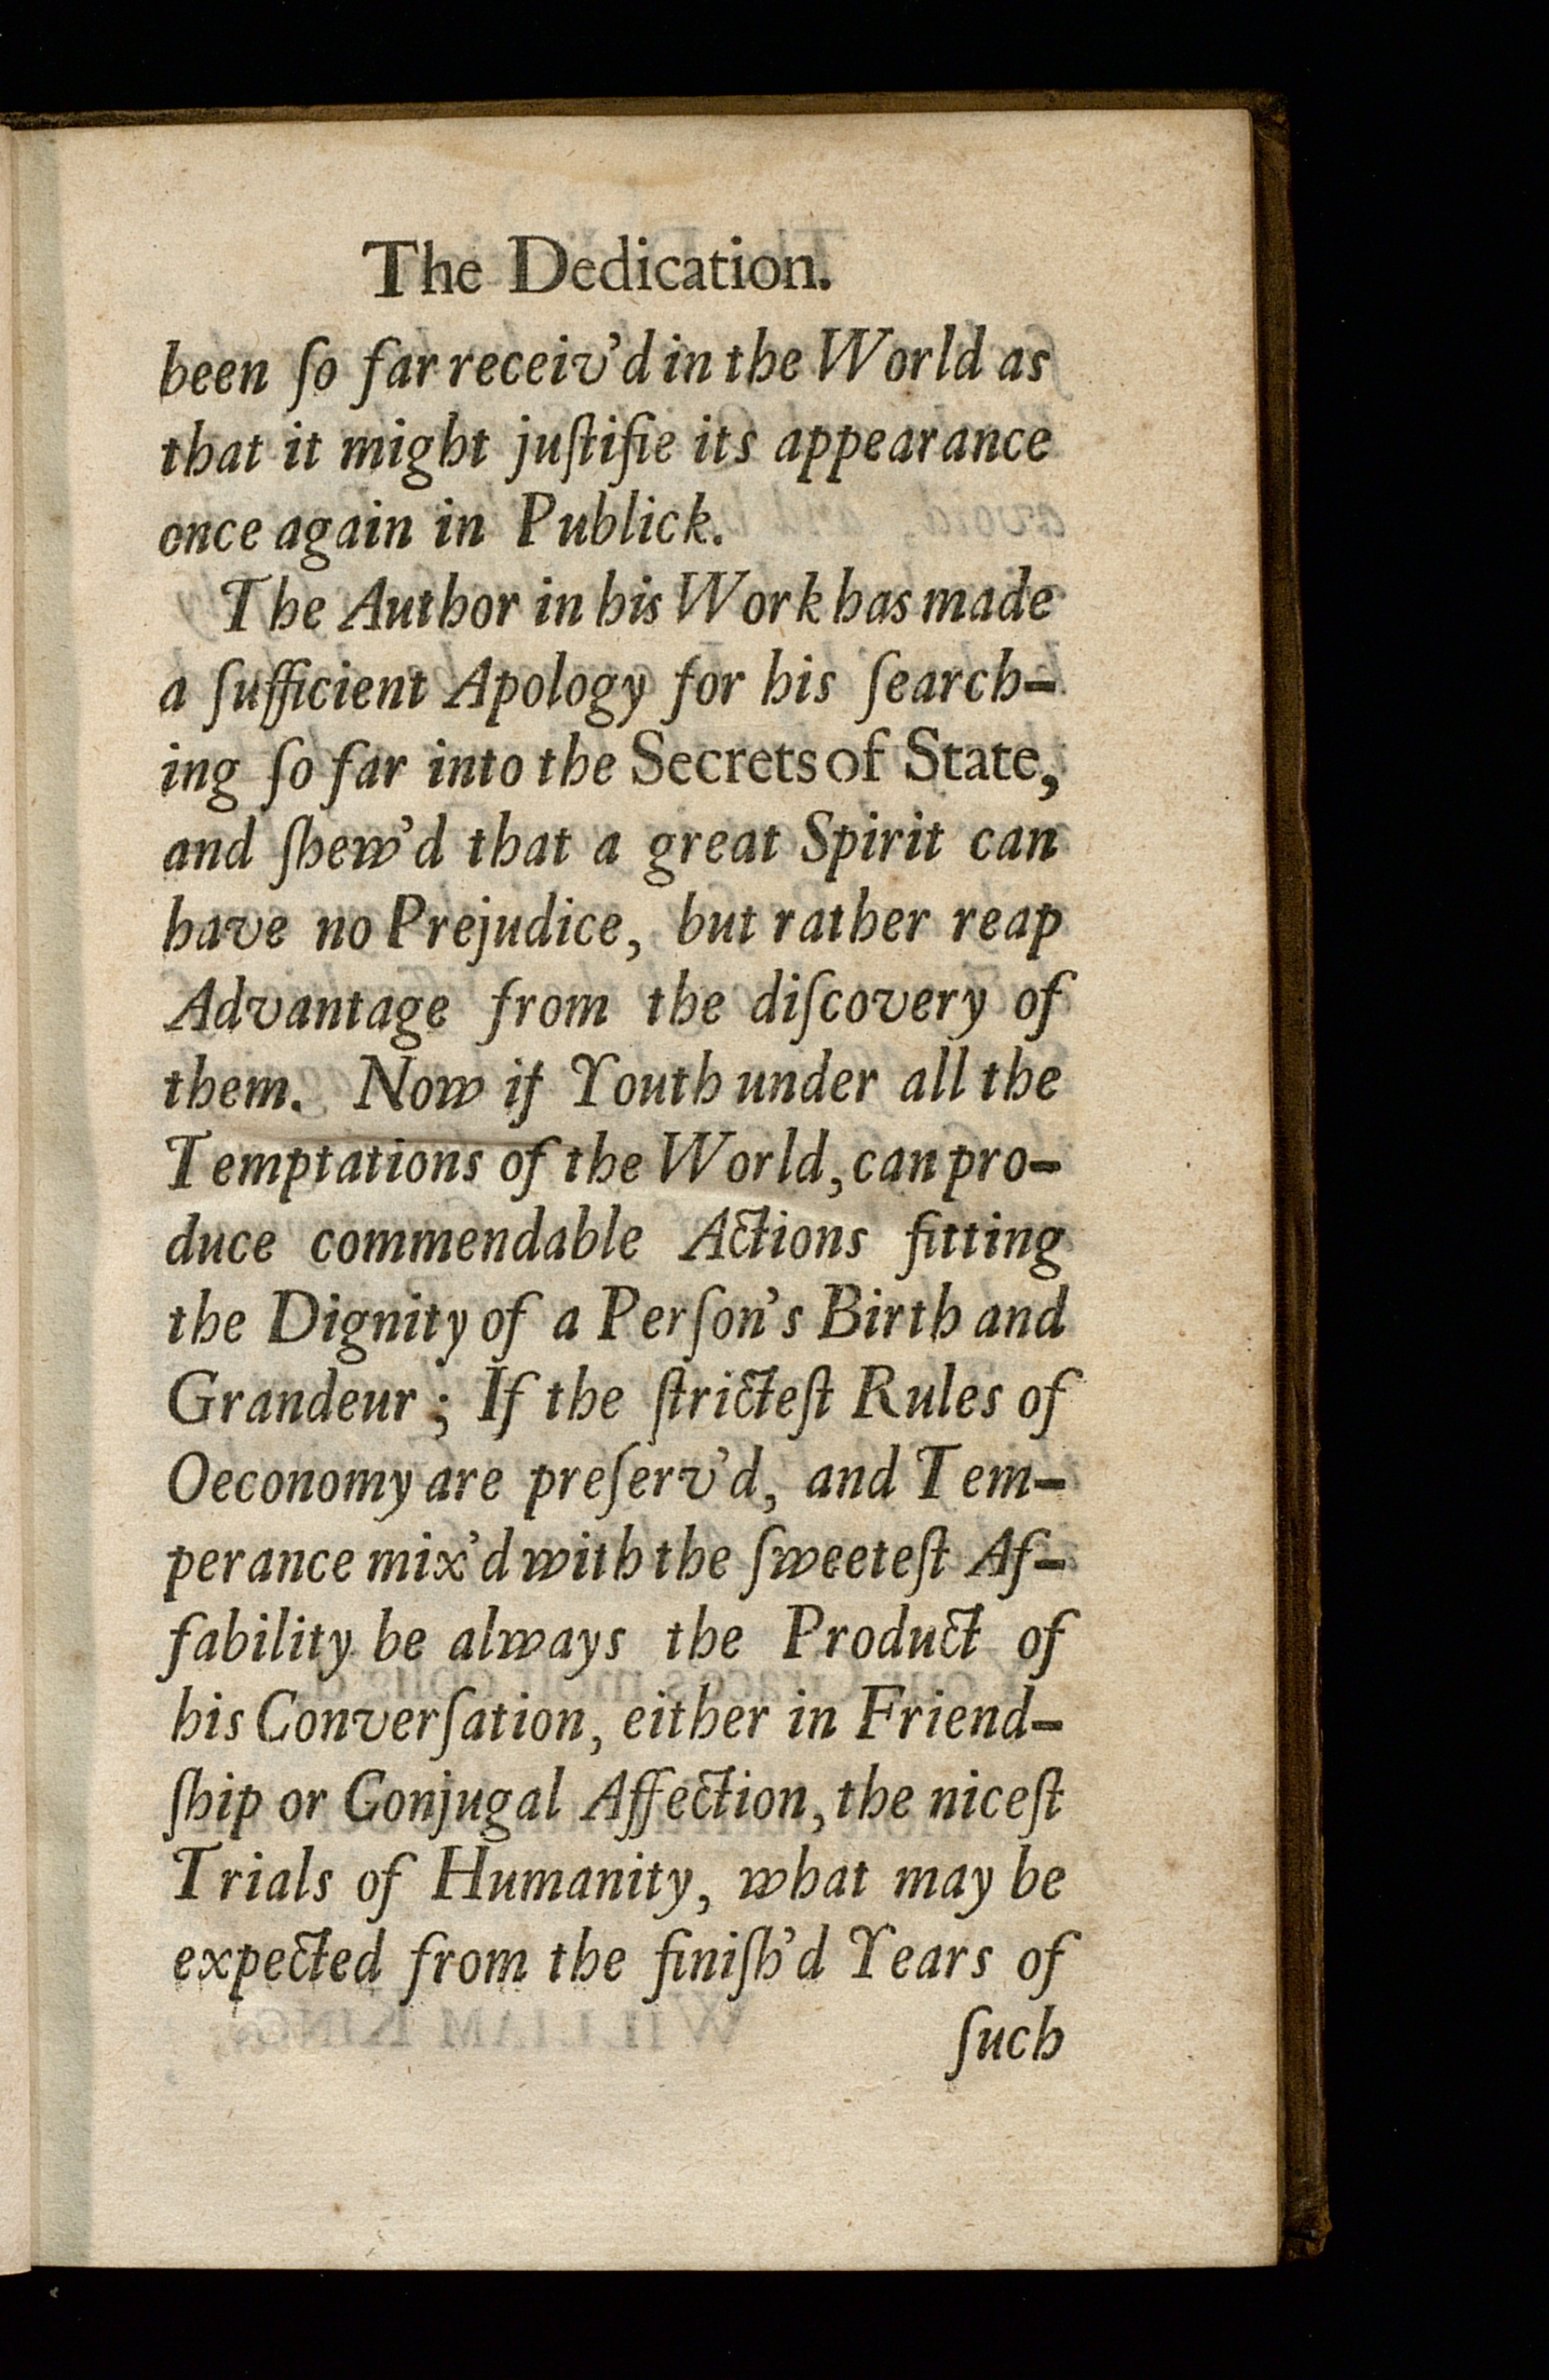 The Dedication.
been ſo far receiv'd in the World as
that it might juſtifie its appearance
once again in Publick.
The Author in his Work has made
a ſufficient Apology for his ſearch-
ing ſo far into the Secrets of State,
and ſhew'd that a great Spirit can
have no Prejudice, but rather reap
Advantage from the diſcovery of
them. Now if Youth under all the
Temptations of the World, can pro-
duce commendable Actions fitting
the Dignity of a Perſon's Birth and
Grandeur; If the ſtricteſt Rules of
Oeconomy are preſerv'd, and Tem-
perance mix'd with the ſweeteſt Af-
fability be always the Product of
his Converſation, either in Friend-
ſhip or Conjugal Affection, the niceſt
Trials of Humanity, what may be
expected from the finiſh'd Years of
ſuch